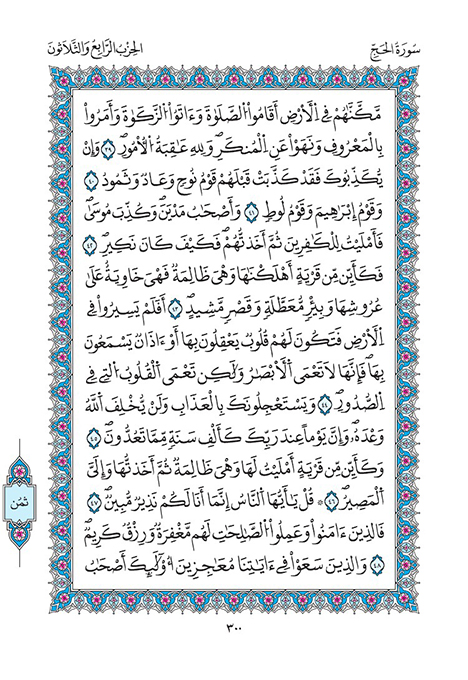 سُورَةُ الْحَجِّ
الحِزْبُ الرَّابِعُ وَالثَّلَاثُونَ
مَّكَّنَّٰهُمْ فِے اِ۬لَارْضِ أَقَامُواْ اُ۬لصَّلَوٰةَ وَءَاتَوُاْ اُ۬لزَّكَوٰةَ وَأَمَرُواْ
بِالْمَعْرُوفِ وَنَهَوْاْ عَنِ اِ۬لْمُنكَرِۖ وَلِلهِ عَٰقِبَةُ اُ۬لُامُورِۖ ٣٩ وَإِنْ
يُّكَذِّبُوكَ فَقَدْ كَذَّبَتْ قَبْلَهُمْ قَوْمُ نُوحٖ وَعَادٞ وَثَمُودُ ٤٠
وَقَوْمُ إِبْرَٰهِيمَ وَقَوْمُ لُوطٖ ٤١ وَأَصْحَٰبُ مَدْيَنَۖ وَكُذِّبَ مُوس۪يٰۖ
فَأَمْلَيْتُ لِلْكٰ۪فِرِينَ ثُمَّ أَخَذتُّهُمْۖ فَكَيْفَ كَانَ نَكِيرِۦۖ ٤٢
فَكَأَيِّن مِّن قَرْيَةٍ اَهْلَكْنَٰهَا وَهْيَ ظَالِمَةٞ فَهْيَ خَاوِيَةٌ عَلَيٰ
عُرُوشِهَا وَبِيرٖ مُّعَطَّلَةٖ وَقَصْرٖ مَّشِيدٍۖ ٤٣ اَفَلَمْ يَسِيرُواْ فِے
اِ۬لَارْضِ فَتَكُونَ لَهُمْ قُلُوبٞ يَعْقِلُونَ بِهَا أَوَ اٰذَانٞ يَسْمَعُونَ
بِهَاۖ فَإِنَّهَا لَا تَعْمَي اَ۬لَابْصَٰرُ وَلَٰكِن تَعْمَي اَ۬لْقُلُوبُ اُ۬لتِے فِے
اِ۬لصُّدُورِۖ ٤٤ وَيَسْتَعْجِلُونَكَ بِالْعَذَابِ وَلَنْ يُّخْلِفَ اَ۬للَّهُ
وَعْدَهُۥۖ وَإِنَّ يَوْماً عِندَ رَبِّكَ كَأَلْفِ سَنَةٖ مِّمَّا تَعُدُّونَۖ ٤٥
وَكَأَيِّن مِّن قَرْيَةٍ اَمْلَيْتُ لَهَا وَهْيَ ظَالِمَةٞ ثُمَّ أَخَذتُّهَا وَإِلَيَّ
اَ۬لْمَصِيرُۖ ٤٦ ۞ قُلْ يَٰأَيُّهَا اَ۬لنَّاسُ إِنَّمَا أَنَا لَكُمْ نَذِيرٞ مُّبِينٞۖ ٤٧
فَالذِينَ ءَامَنُواْ وَعَمِلُواْ اُ۬لصَّٰلِحَٰتِ لَهُم مَّغْفِرَةٞ وَرِزْقٞ كَرِيمٞۖ
٤٨ وَالذِينَ سَعَوْاْ فِے ءَايَٰتِنَا مُعَٰجِزِينَ أُوْلَٰٓئِكَ أَصْحَٰبُ
ثُمُن
٣٠٠